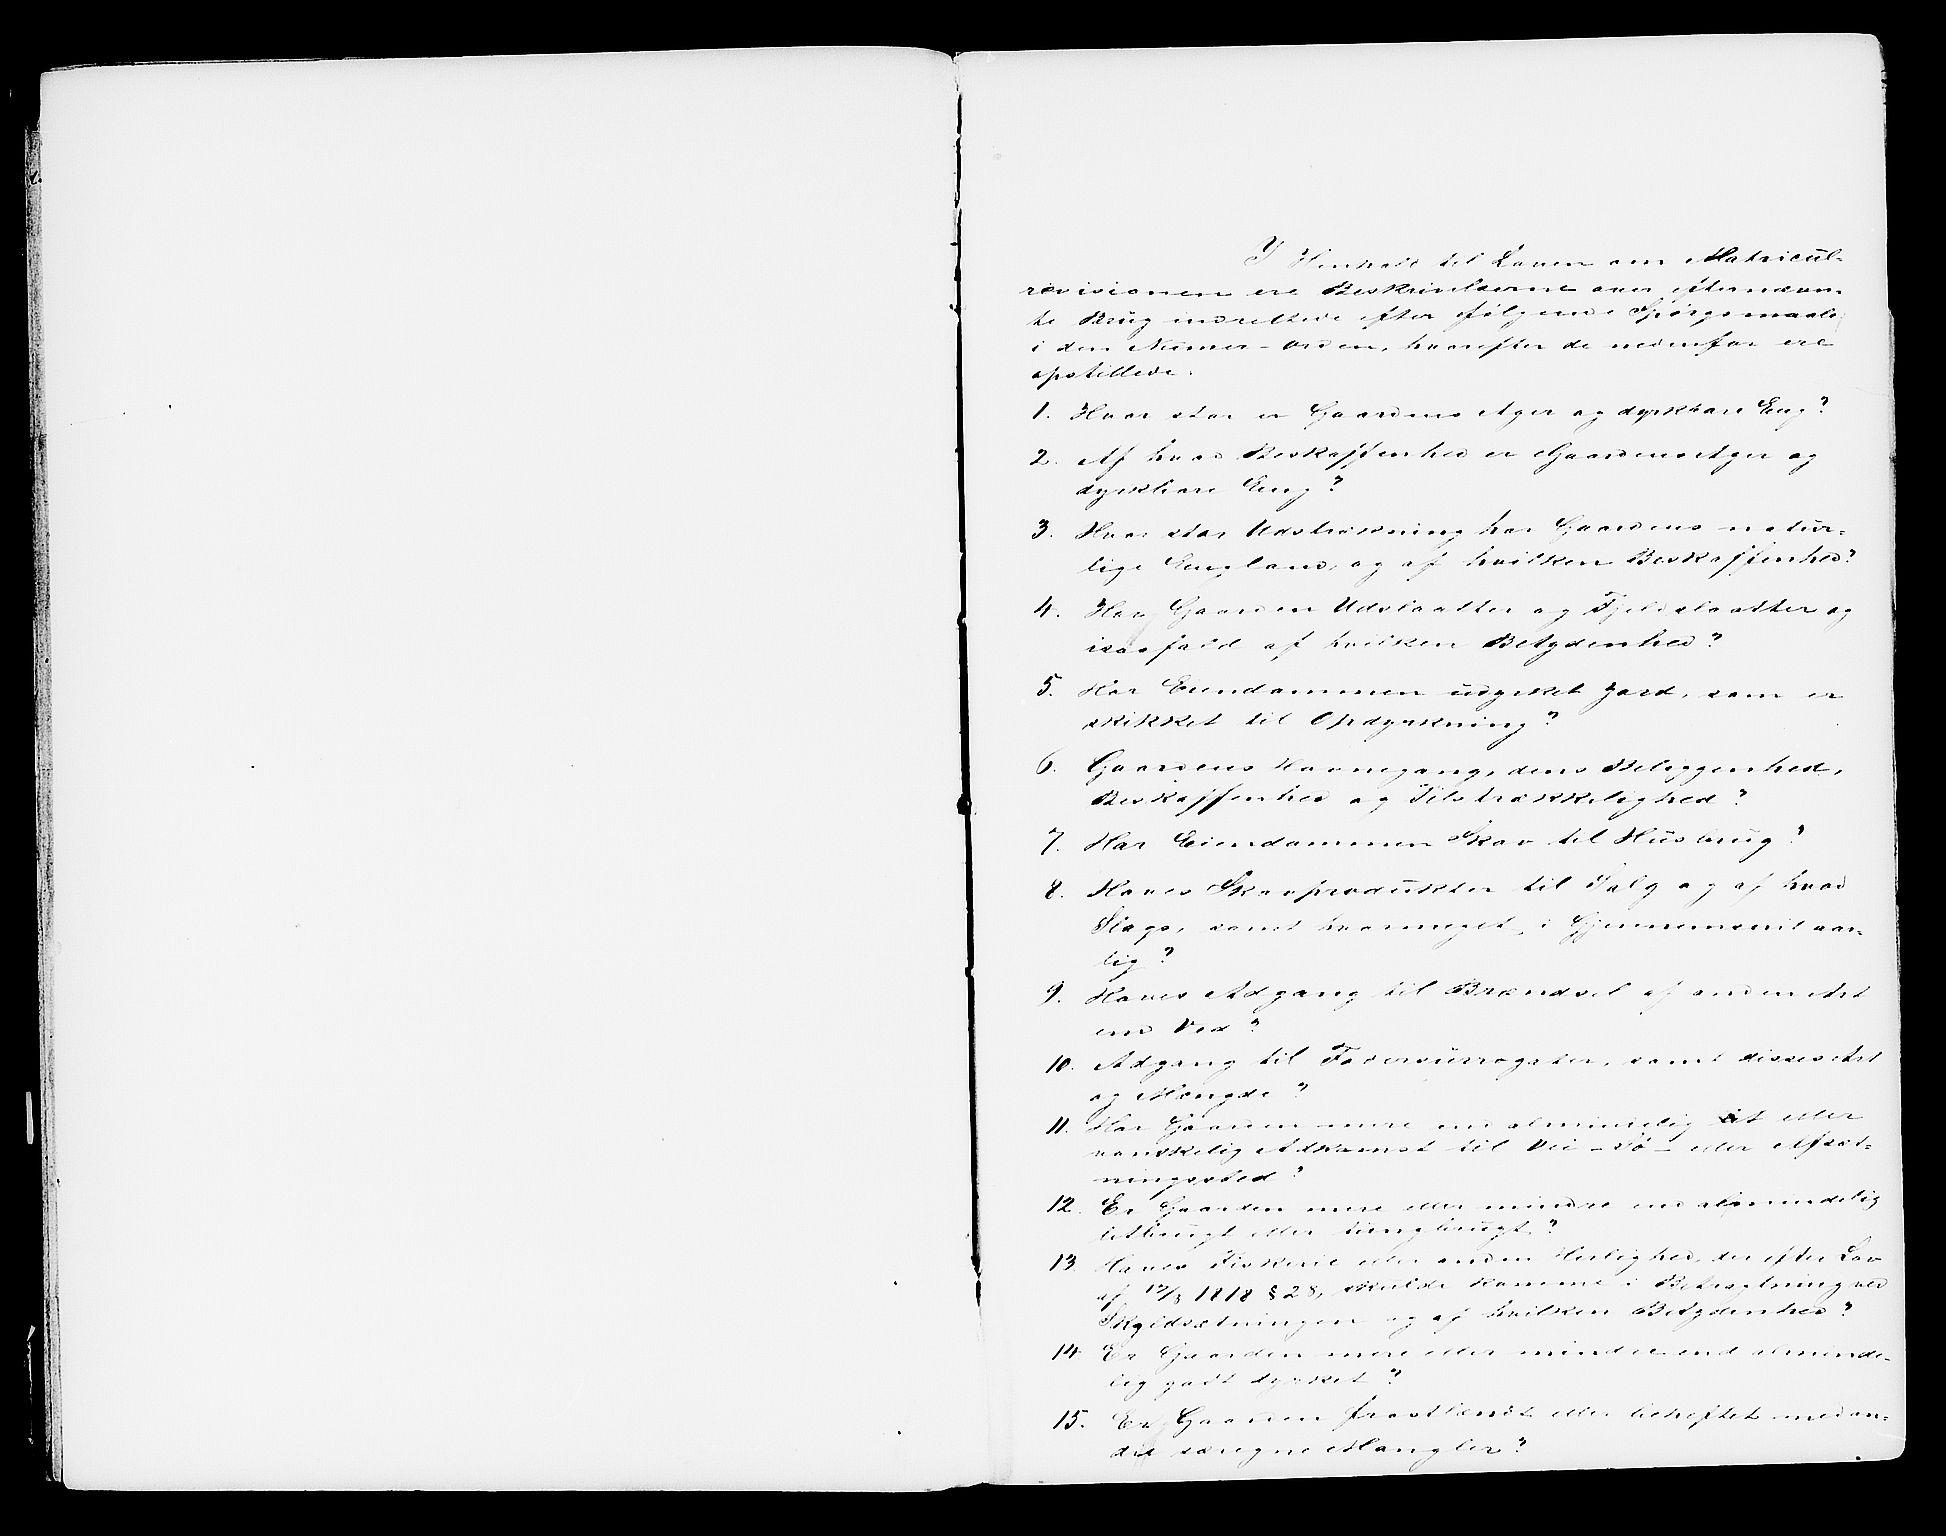 I Henhold til Loven om Matricul-
revisionen ere Beskrivelserne over efternævn-
te Brug indrettede efter følgende Spørgsmaale
i den Numer-Orden, hvorefter de nedenfor ere
opstillede.
1. Hvor stor er Gaardens Ager og dyrkbare Eng?
2. Af hvad Beskaffenhed er Gaardens Ager og
dyrkbare Eng?
3. Hvor stor Udstrækning har Gaardens natur-
lige England, og af hvilken Beskaffenhed?
4. Har Gaarden Udslaatter og Fjeldslaatter og
isaafald af hvilken Betydenhed?
5. Har Eiendommen udyrket Jord, som er
skikket til Opdyrkning?
6. Gaardens Havnegang, dens Beliggenhed,
Beskaffenhed og Tilstrækkelighed?
7. Har Eiendommen Skov til Husbrug?
8. Haves Skovprodukter til Salg og af hvad
Slags, samt hvormeget, i Gjennemsnit aar-
lig?
9. Haves Adgang til Brændsel af anden Art
end Ved?
10. Adgang til Fodersurrogater, samt disses Art
og Mængde?
11. Har Gaarden mere end almindelig let eller
vanskelig Adkomst til Vei- Sø- eller Afsæt-
ningssted?
12. Er Gaarden mere eller mindre end almindelig
letbrugt eller tungbrugt?
13. Haves Fiskerie eller anden Herlighed, der efter Lov
af 17/8 1818 § 28, skulde komme i Betragtning ved
Skyldsætningen og af hvilken Betydenhed?
14. Er Gaarden mere eller mindre end alminde-
lig godt dyrket?
15. Er Gaarden frostlændt eller beheftet med an-
dre særegne Mangler?